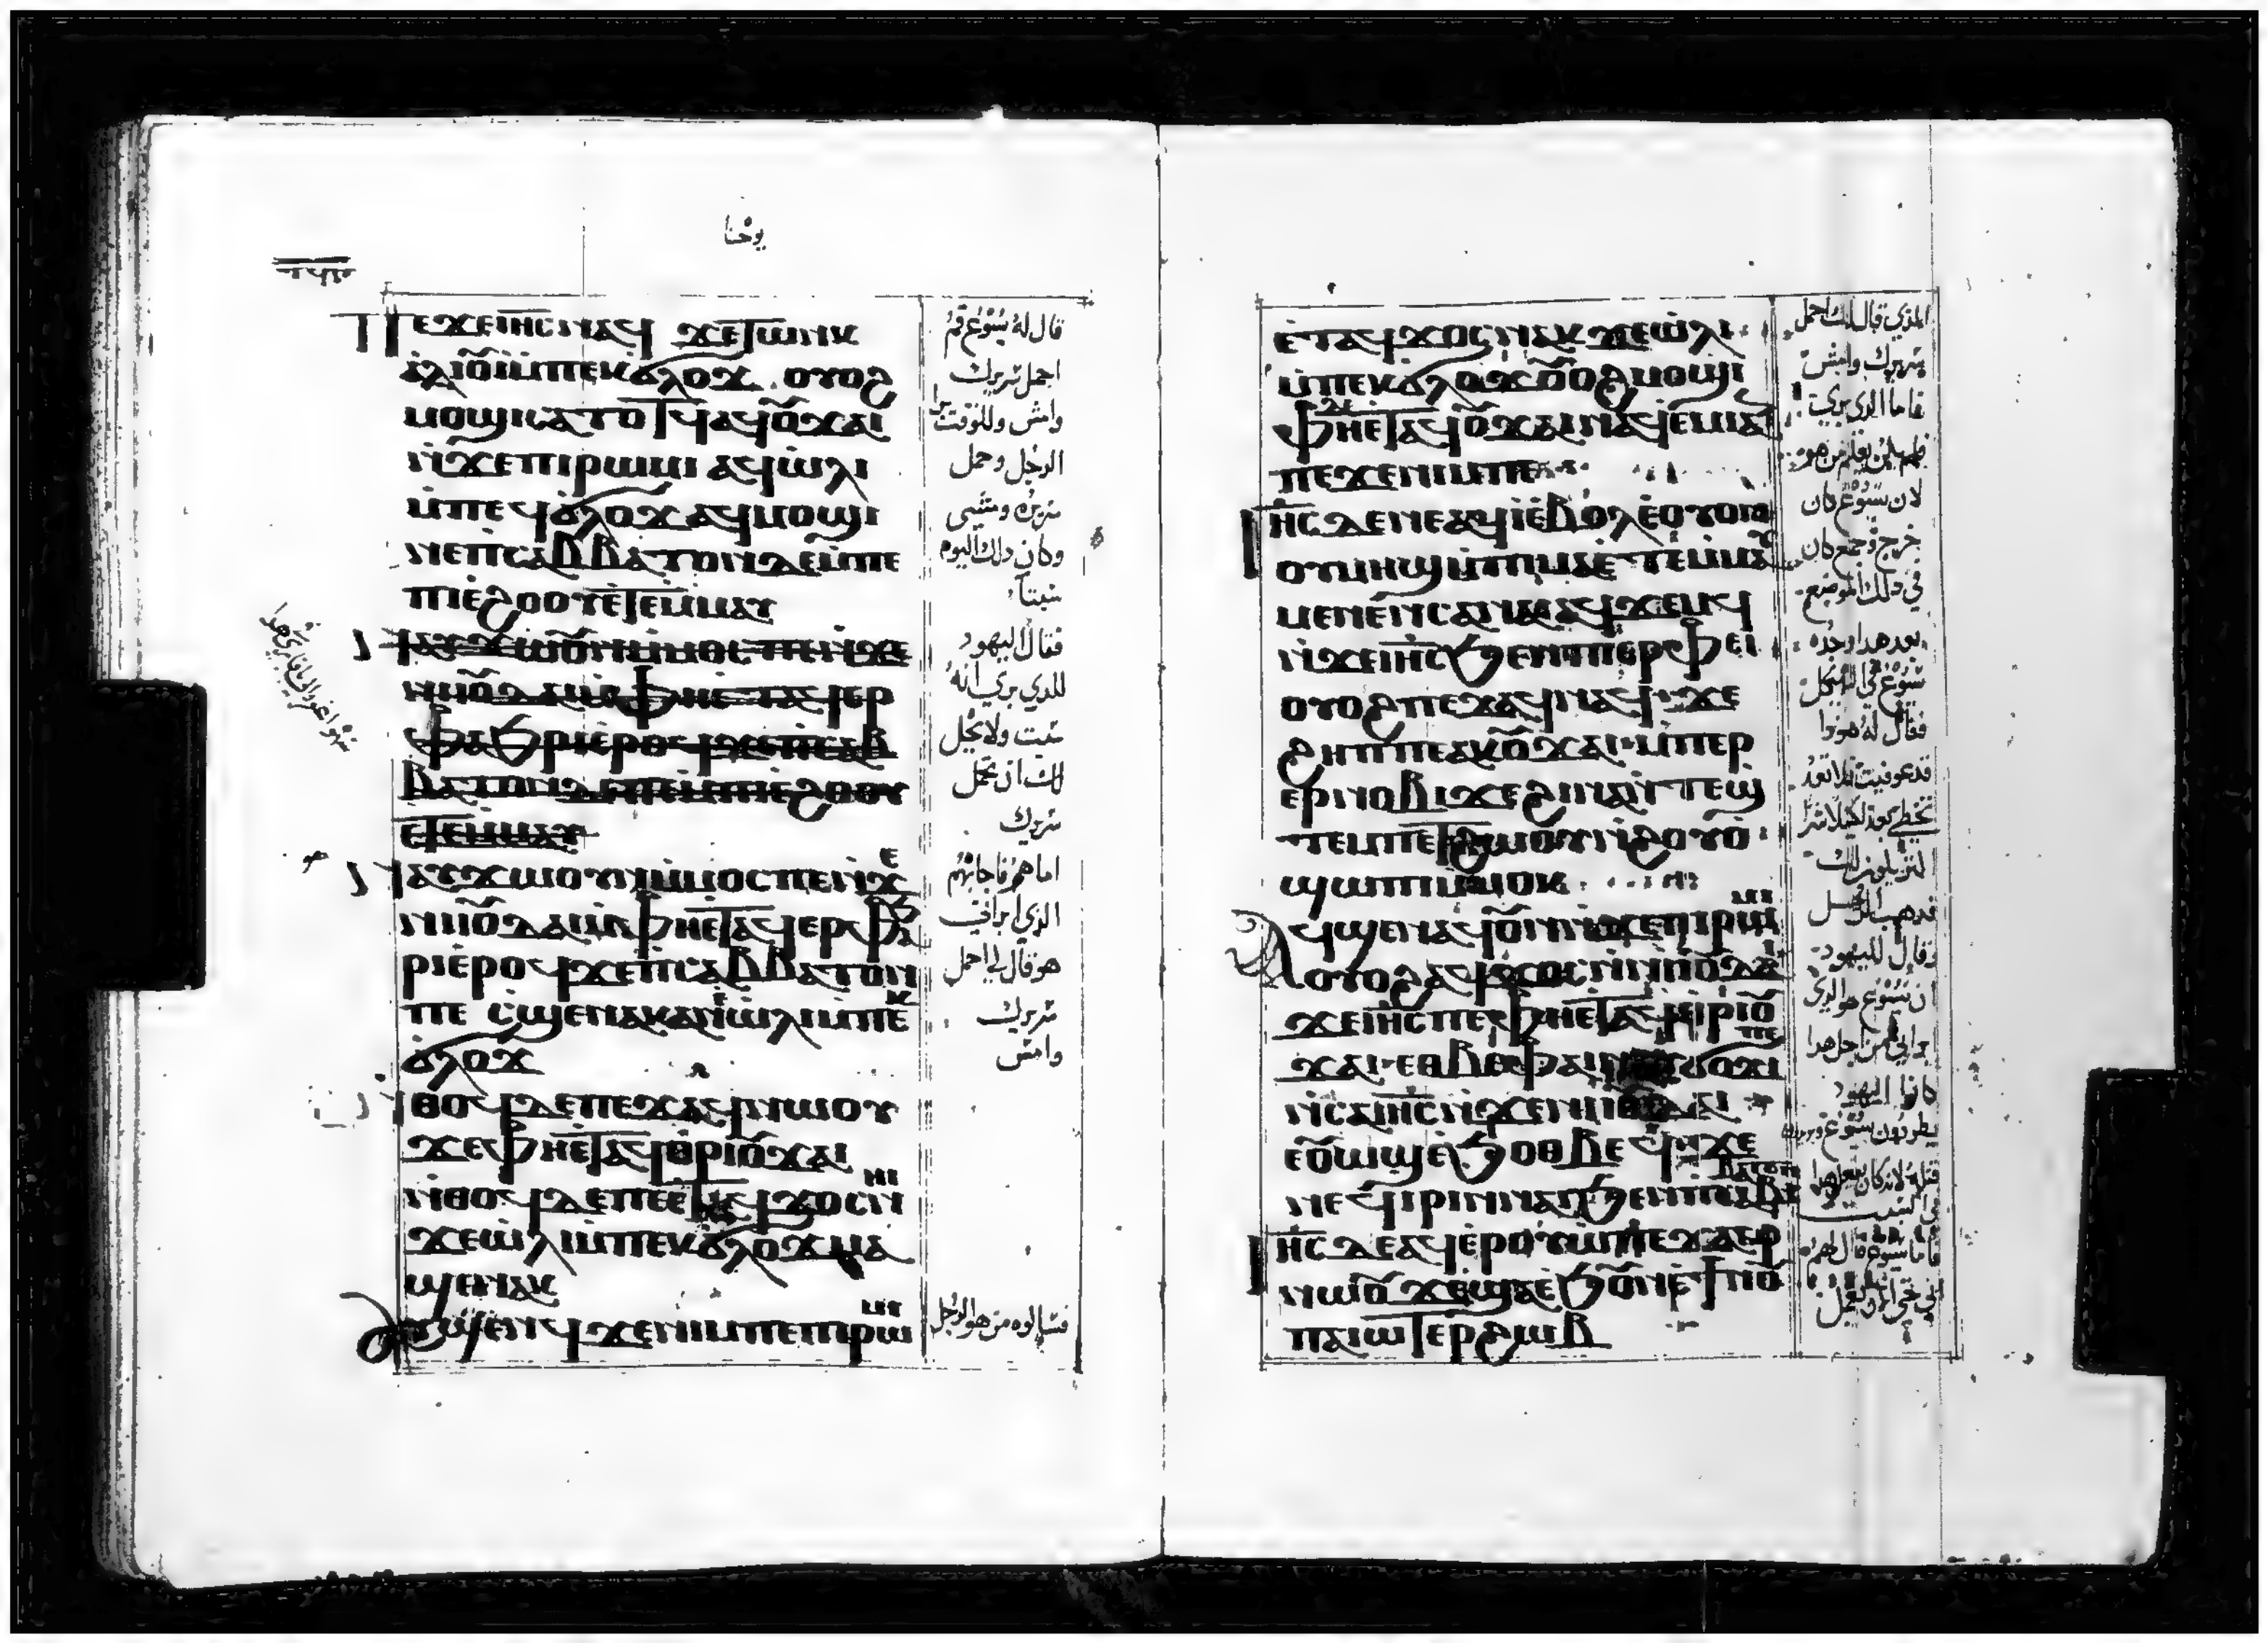 يوحنا
Ⲡⲉϫⲉⲓⲏⲥⲛⲁϥ ϫⲉⲧⲱⲛⲕ
ⲁⲗⲓⲟⲩⲓⲙⲡⲉⲕϭⲗⲟϫ ⲟⲩⲟϩ
ⲙⲟϣⲓⲕⲁⲧⲟⲧϥⲁϥⲟⲩϫⲁⲓ
ⲛϫⲉⲡⲓⲣⲱⲙⲓ ⲁϥⲱⲗⲓ
ⲙⲡⲉϥϭⲗⲟϫ ⲁϥⲙⲟϣⲓ
ⲛⲉⲡⲥⲁⲃⲃⲁⲧⲟⲛⲇⲉⲙⲡⲉ
ⲡⲓⲉϩⲟⲟⲩⲉⲧⲉⲙⲙⲁⲩ
ⲛⲁⲩϫⲱⲟⲩⲛⲙⲙⲟⲥⲡⲉⲛϫⲉ
ⲛⲓⲓⲟⲩⲇⲁⲓⲙⲫⲏⲉⲧⲁϥⲉⲣ
ⲫⲁϧⲣⲓⲉⲣⲟϥϫⲉⲡⲥⲁⲃ
ⲃⲁⲧⲟⲛⲇⲉⲡⲉⲙⲡⲓⲉϩⲟⲟⲩ
ⲉⲧⲉⲙⲙⲁⲩ
ⲛⲁⲩϫⲱⲟⲩⲛⲙⲙⲟⲥⲡⲉⲛϫⲉ
ⲛⲓⲓⲟⲩⲇⲁⲓⲙⲫⲏⲉⲧⲁϥⲉⲣⲫⲁϧ
ⲣⲓⲉⲣⲟϥϫⲉⲡⲥⲁⲃⲃⲁⲧⲟⲛ
ⲡⲉ ⲥϣⲉⲛⲁⲕⲁⲛⲉⲱⲗⲓⲙⲡⲉⲕ
ϭⲗⲟϫ
ⲛⲑⲟϥⲇⲉⲡⲉϫⲁϥⲛⲱⲟⲩ
ϫⲉⲫⲏⲉⲧⲁϥⲑⲣⲓⲟⲩϫⲁⲓ
ⲛⲑⲟϥⲇⲉⲡⲉⲉⲧⲁϥϫⲟⲥⲛⲏⲓ
ϫⲉⲱⲗⲓⲙⲡⲉⲕϭⲗⲟϫⲙⲁ
ϣⲉⲛⲁⲕ
ⲁⲩϣⲉⲛϥ ϫⲉⲛⲓⲙⲡⲉⲡⲓⲣⲱⲙⲓ
قال له يسوع قم
احمل سريرك
وامش وللوقت برا
الرجل وحمل
سريره ومشى
وكان ذلك اليوم
سبتا
فقال اليهود
للذي بري انه
سبت ولا يحل
لك ان تحمل
سريرك
اما هو فاجابهم
الذي ابراني
هو قال لي احمل
سريرك
وامش
فسالوه من هو الرجل
ⲉⲧⲁϥϫⲟⲥⲛⲁⲕ ϫⲉⲱⲗⲓ
ⲙⲡⲉⲕϭⲗⲟϫⲟⲩⲟϩⲙⲟϣⲓ
ⲫⲏⲇⲉⲉⲧⲁϥⲟⲩϫⲁⲓⲛⲁϥⲉⲙⲓⲁⲛ
ⲡⲉϫⲉⲛⲓⲙⲡⲉ
ⲓⲏⲥⲇⲉⲛⲉⲁϥⲓⲉⲃⲟⲗⲉⲟⲩⲟⲛ
ⲟⲩⲙⲏϣⲙⲡⲓⲙⲁⲉⲧⲉⲙⲙⲁⲩ
ⲙⲉⲛⲉⲛⲥⲁⲛⲁⲓⲁϥϫⲉⲙϥ
ⲛϫⲉⲓⲏⲥϧⲉⲛⲡⲓⲉⲣⲫⲉⲓ
ⲟⲩⲟϩⲡⲉϫⲁϥⲛⲁϥ ϫⲉ
ϩⲏⲡⲡⲉⲁⲕⲟⲩϫⲁⲓ ⲙⲡⲉⲣ
ⲉⲣⲛⲟⲃⲓϫⲉϩⲓⲛⲁⲛⲧⲉϣ
ⲧⲉⲙⲡⲉⲧϩⲱⲟⲩⲛϩⲟⲩⲟ
ϣⲱⲡⲓⲙⲙⲟⲕ
ⲁϥϣⲉⲛⲁϥⲟⲩⲛⲛϫⲉⲡⲓⲣⲱⲙⲓ
ⲟⲩⲟϩⲁϥϫⲟⲥⲛⲛⲓⲓⲟⲩⲇⲁⲓ
ϫⲉⲓⲏⲥⲡⲉⲫⲏⲉⲧⲁϥⲉⲓⲣⲓⲟⲩ
ϫⲁⲓ ⲉⲑⲃⲉⲫⲁⲓ ϭⲟϫⲓ
ⲛⲥⲁⲓⲏⲥⲛϫⲉⲛⲓⲓⲟⲩⲇⲁⲓ
ⲉⲟⲩⲱϣⲉϧⲟⲑⲃⲉϥ ϫⲉ
ⲛⲉϥⲓⲣⲓⲛⲛⲁⲓϧⲉⲛⲡⲥⲁⲃⲃⲁⲧⲟⲛ
ⲓⲏⲥⲇⲉⲁϥⲉⲣⲟⲩⲱⲡⲉϫⲁϥ
ⲛⲱⲟⲩ ϫⲉϣⲁⲉϧⲟⲩⲛⲉϯⲛⲟⲩ
ⲡⲁⲓⲱⲧⲉⲣϩⲱⲃ
الذي قال لك احمل
سريرك وامش
فاما الذي بري
فلم يكن يعلم من هو
لان يسوع كان
خرج وجمع كان
في ذلك الموضع
بعد هذا وجده
يسوع في الهيكل
فقال له هوذا
قد عوفيت فلا تعد
فذهب الرجل
وقال لليهود
ان يسوع هو الذي
ابراني من اجل هذا
كانوا اليهود
يطردون يسوع
فاما يسوع قال لهم